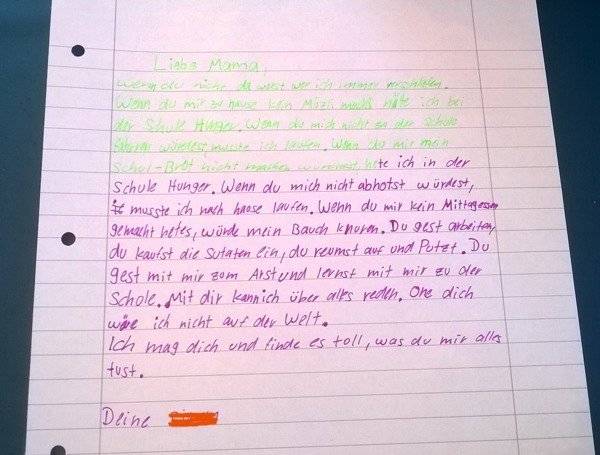 Liebe Mama,
wenn du nicht da werst wer ich immer verschlafen.
Wenn du mir zu hause kein Müsli machst häte ich bei
der Schule Hunger. Wenn du mich nicht zu der Schole
fahren würdest, musste ich laufen. Wenn du mir mein
Schol-Brot nicht machen würdest hete ich in der
Schule Hunger. Wenn du mich nicht abholst würdest,
musste ich nach haose laufen. Wenn du mir kein Mittagessen
gemacht hetes, würde mein Bauch knuren. Du gest arbeiten,
du kaufst die Sutaten ein, du reumst auf und Putzt. Du
gest mit mir zom Arst und lernst mit mir zu der
Schole. Mit dir kann ich über alles reden. One dich
wäre ich nicht auf der Welt.
Ich mag dich und finde es toll, was du mir alles
tust.
Deine